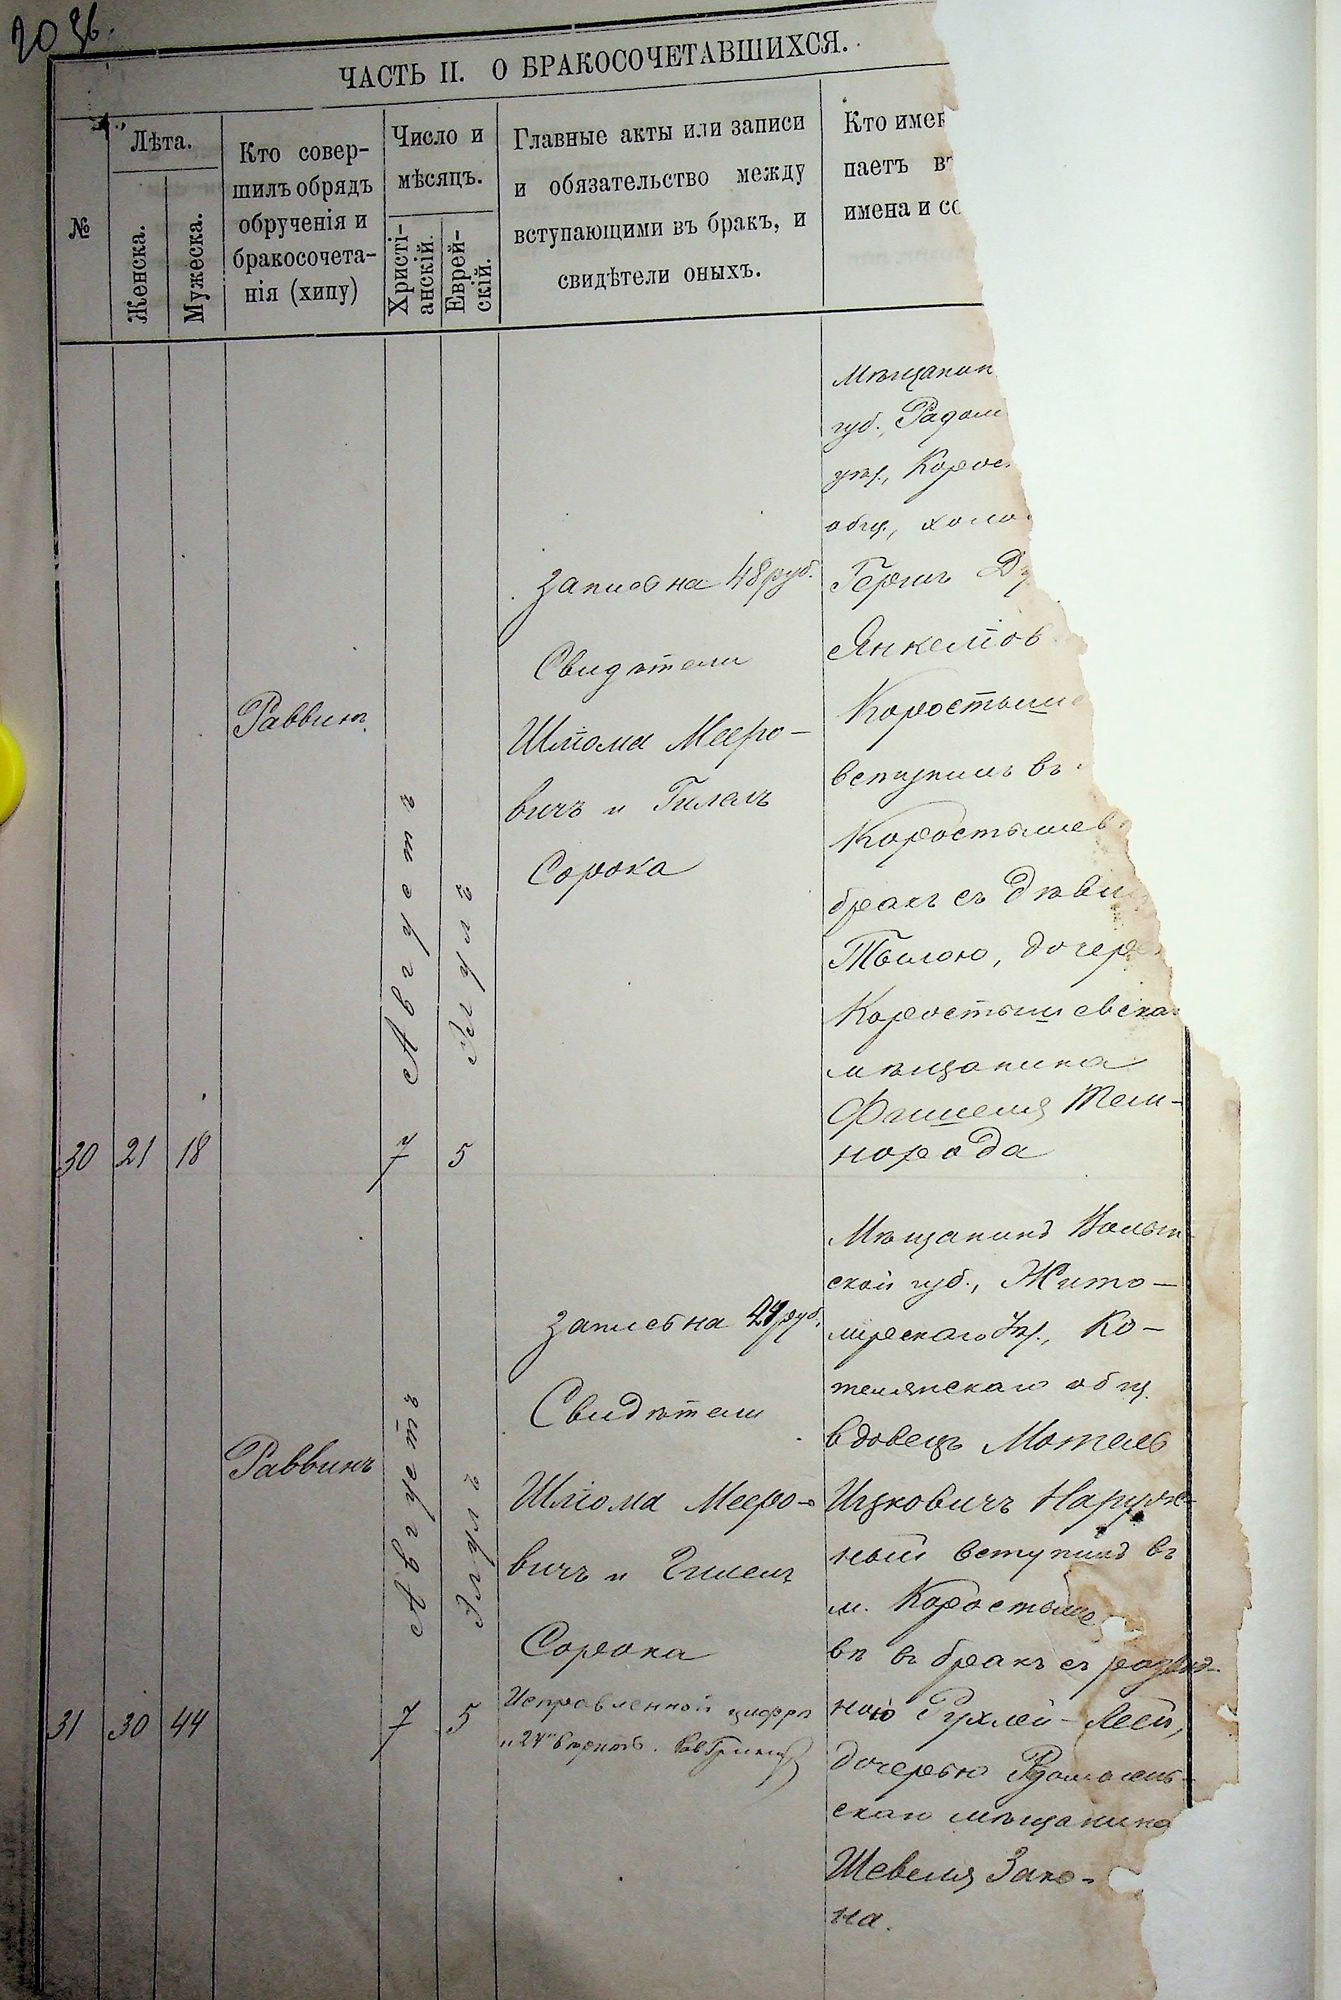 20 36.
ЧАСТЬ II. О БРАКОСОЧЕТАВШИХСЯ.
№
Лѣта.
Женска.
Мужеска.
Кто совер-
шилъ обрядъ
обрученія и
бракосочета-
нія (хипу)
Число и
мѣсяцъ.
Христі-
анскій.
Еврей-
скій.
Главные акты или записи
и обязательство между
вступающими въ бракъ, и
свидѣтели оныхъ.
Кто имен
паетъ въ
имена и со
30
21
18
Раввинъ
7
Августъ
5
Элулъ
Запись на 48 руб.
Свидѣтели
Шлiома Мееро-
вичъ и Гилель
Сорока
Мѣщанин
губ., Радом
уѣз., Корос
общ., холо
Герш
Янкелiов
Коростыше
вступилъ въ
Коростышев
бракъ съ дѣви
дочер
Коростышевска
мѣщанина
Фишеля Тем-
норода
31
30
44
Раввинъ
7
Августъ
5
Элулъ
Запись на 24 руб.
Свидѣтели
Шлiома Мееро-
вичъ и Гилель
Сорока
Исправленной цифрѣ
„24“ вѣрить.
Мѣщанинъ Волын-
ской губ., Жито-
мирскаго Уѣз., Ко-
тельнскаго общ.
вдовецъ Мотель
Ицковичъ Наруж-
ный вступилъ въ
м. Коростыше
вѣ въ бракъ съ развед-
ною Рухлей-Леей,
дочерью Радомысль-
скаго мѣщанина
Шевеля Зако-
на.